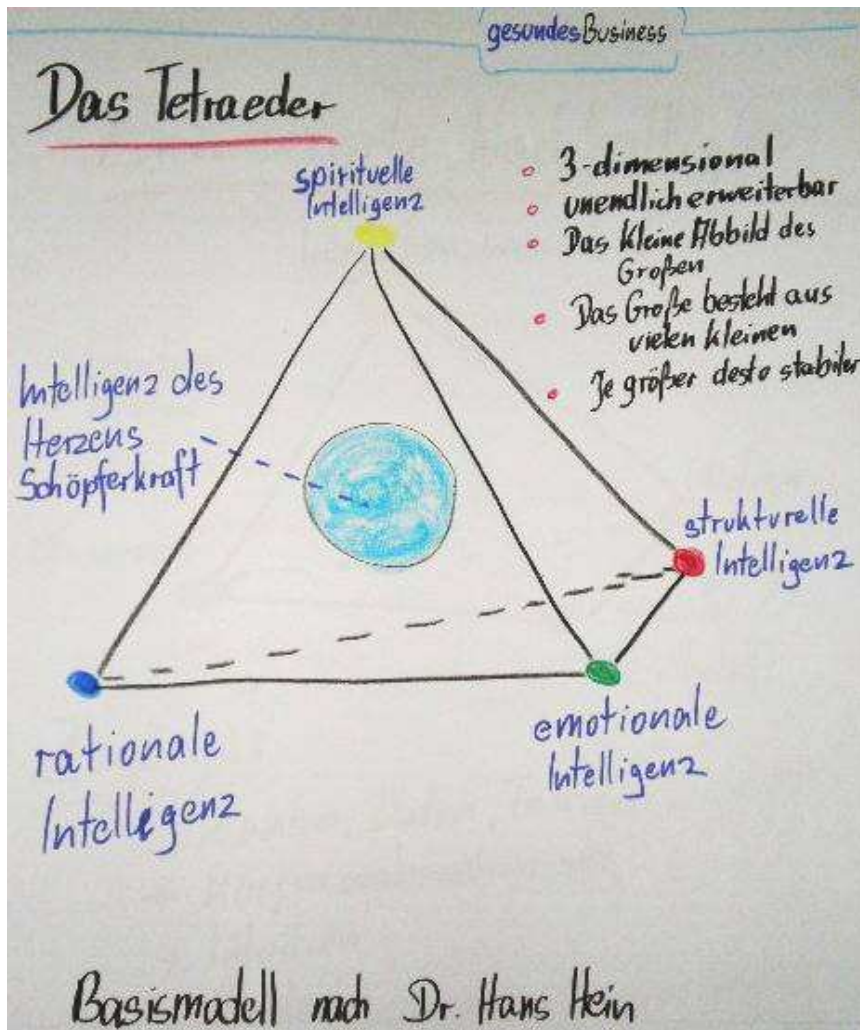 gesundesBusiness
Das Tetraeder
spirituelle
Intelligenz
3-dimensional
unendlich erweiterbar
Das kleine Abbild des
Großen
Das Große besteht aus
vielen kleinen
Je größer desto stabiler
Intelligenz des
Herzens
Schöpferkraft
strukturelle
Intelligenz
rationale
Intelligenz
emotionale
Intelligenz
Basismodell nach Dr. Hans Hein